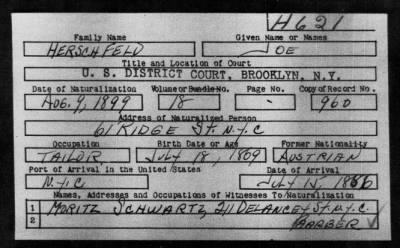 H621
Family Name Given Name or Names
HERSCHFELD JOE
Title and Location of Court
U. S. DISTRICT COURT, BROOKLYN, N.Y.
Date of Naturalization Volume or Bundle No. Page No. Copy of Record No.
AUG. 9, 1899 18 960
Address of Naturalized Person
61 RIDGE St. N.Y.C
Occupation Birth Date or Age Former Nationality
TAILOR JULY 18, 1869 AUSTRIAN
Port of Arrival in the United States Date of Arrival
N.Y.C JULY 15, 1886
Names, Addresses and Occupations of Witnesses To Naturalization
1 MORITZ SCHWARTZ, 211 DELANCEY St. N.Y.C.
2 BARBER